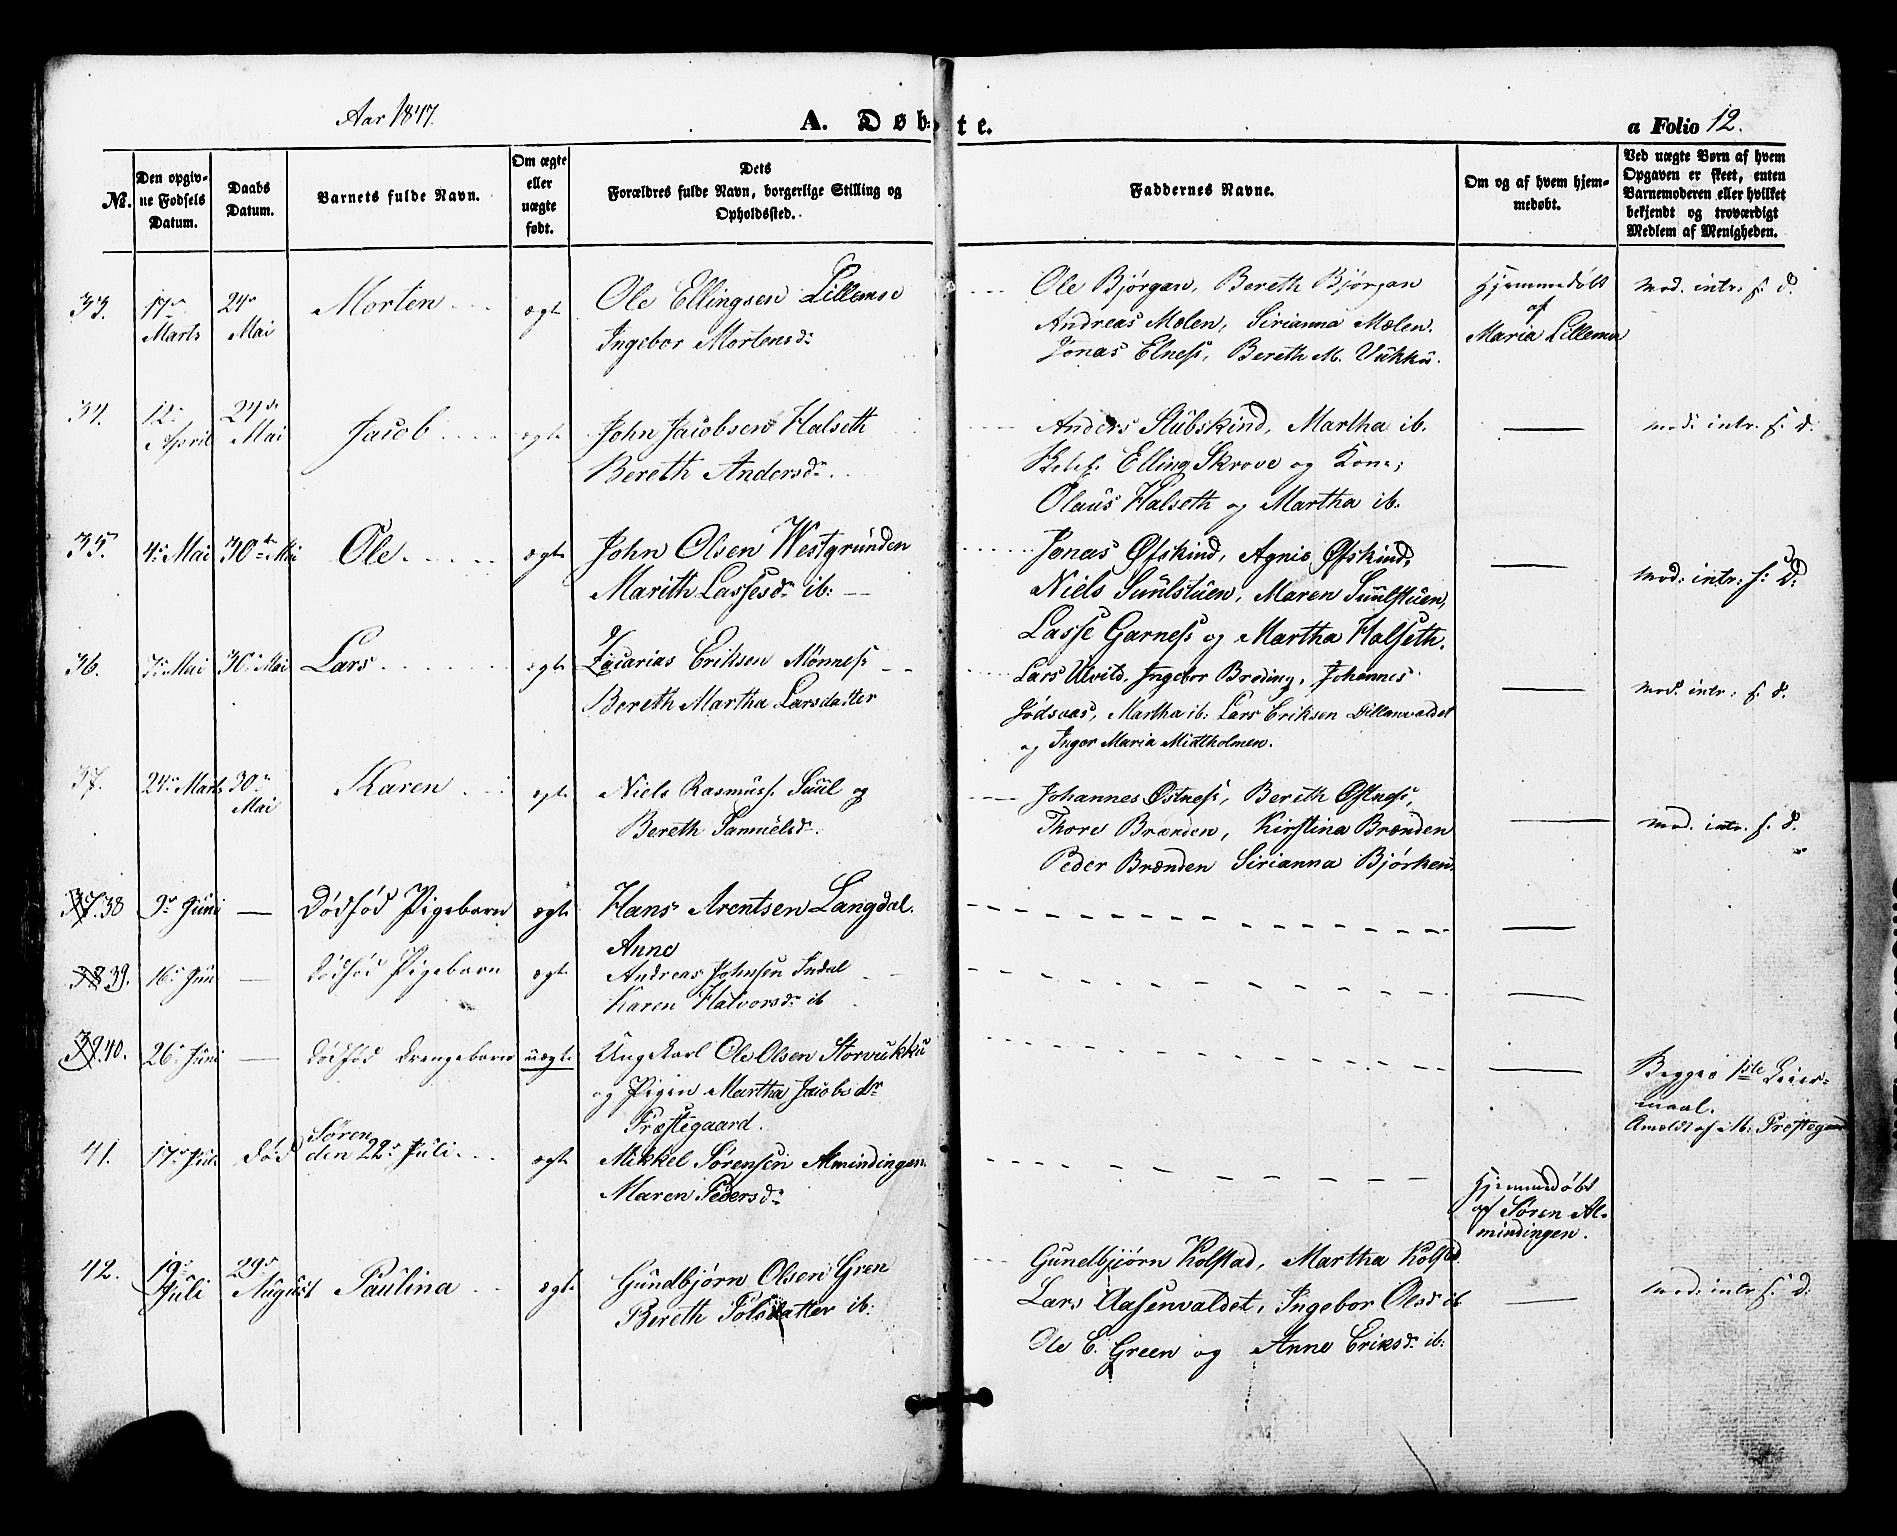 Aar 1847.
A. Døbte.
a Folio 12.
No.
Den opgivne Fødsels Datum.
Daabs Datum.
Barnets fulde Navn.
Om ægte eller uægte født.
Dets Forældres fulde Navn, borgerlige Stilling og Opholdssted.
Faddernes Navne.
Om og af hvem hjemmedøbt.
Ved uægte Børn af hvem Opgaven er skeet, enten Barnemoderen eller hvilket bekjendt og troværdigt Medlem af Menigheden.
33. 17de Marts 24de Mai Morten ægte
Ole Ellingsen Lillemo
Ingebor Mortensdr
Ole Bjørgan, Bereth Bjørgan
Andreas Molen, Sirianna Mælen.
Jonas Elness, Bereth M. Vukku.
Hjemmedøbt
af
Maria Lillemo
Mod. intr. f. d.
34. 12te April 24de Mai Jacob ægte
John Jacobsen Halseth
Bereth Andersdr
Anders Stubskind, Martha ib.
Elling Skrove og Kone;
Olaus Halseth og Martha ib.
mod: intr. f. d.
35. 4de Mai 30te Mai Ole ægte
John Olsen Westgrunden
Marith Lassesdr ib:
Jonas Øfskind, Agnis Øfskind,
Niels Suulstuen, Maren Suulstuen,
Lasse Garness og Martha Halseth.
Mod: intr: f: D:
36. 7de Mai 30te Mai Lars ægte
Zacarias Eriksen Mønness
Bereth Martha Larsdatter
Lars Ulvild, Ingebor Brøding, Johannes
Jødsaas, Martha ib: Lars Eriksen Dillanvaldet
og Inger Maria Midtholmen.
Mod. intr: f. d.
37. 24de Marts 30te Mai Karen ægte
Niels Rasmuss. Suul og
Bereth Samuelsdr.
Johannes Østness, Bereth Østness,
Thore Brænden, Kirstina Brænden
Peder Brænden Sirianna Bjørken
Mod. intr. f. d.
37. 38 9de Juni — Dødfød Pigebarn ægte
Hans Arentsen Langdal.
Anne
38 39. 16de Juni — Dødfød Pigebarn ægte
Andreas Johnsen Indal
Karen Halvorsdr ib
39. 40. 26de Juni — Dødfød Drengebarn uægte
Ungekarl Ole Olsen Storvukku
og Pigen Martha Jacobsdr
Præstegaard.
Begges 1ste Leiermaal.
Anmeldt af M: Prestegaard
41. 17de Juli Død
Søren
den 22de Juli. ægte
Mikkel Sørensen Almindingen.
Maren Pedersdr
Hjemmedøbt
af Søren Almindingen.
42. 19de Juli 29de August Paulina ægte
Gundbjørn Olsen Gren
Bereth Polsdatter ib:
Gundbjørn Kolstad, Martha Kolstad
Lars Aasenvaldet, Ingebor Olsdr ib
Ole E. Green og Anne Eriksdr ib:
Mod: intr f: d: